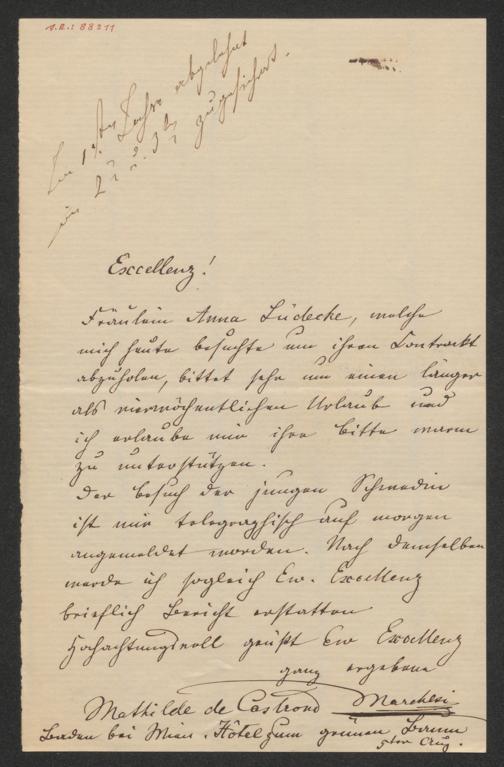 A.N.: 88211
Im 1ten Jahre abgelehnt
im 2t u. 3t zugesichert.
Excellenz!
Fräulein Anna Lüdecke, welche
mich heute besuchte um ihren Contrackt
abzuholen, bittet sehr um einen länger
als vierwöchentlichen Urlaub und
ich erlaube mir ihre Bitte warm
zu unterstützen.
Der Besuch der jungen Schwedin
ist mir telegraphisch auf morgen
angemeldet worden. Nach demselben
werde ich sogleich Ew. Excellenz
brieflich Bericht erstatten
Hochachtungsvoll grüßt Ew Excellenz
ganz ergebene
Mathilde de Castrone Marchesi
Baden bei Wien. Hôtel zum grünen Baum
5ter Aug.